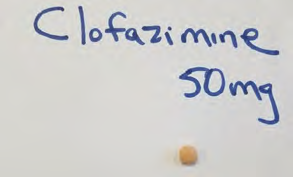 Clofazimine
50mg